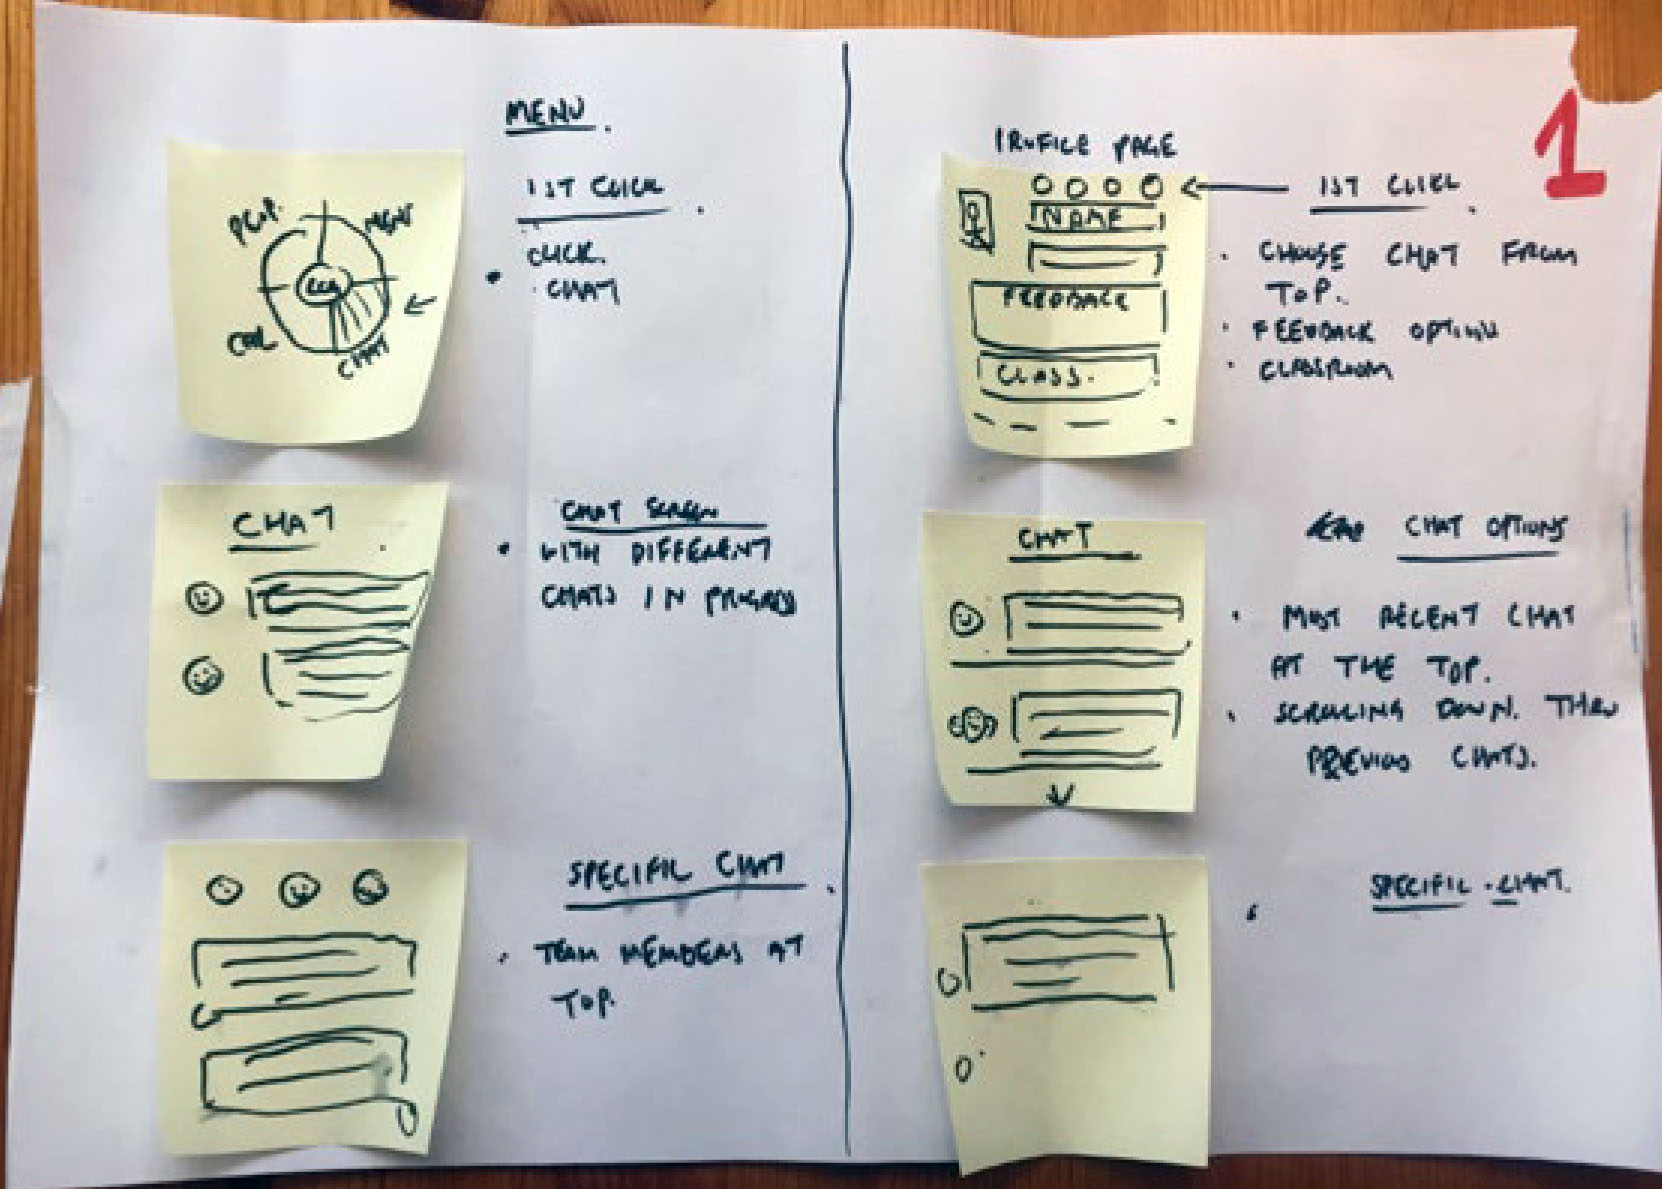 MENU.
1ST CLICK.
CLICK.
CHAT
CHAT
CHAT
CHAT SCREEN
WITH DIFFERENT
CHATS IN PROGRESS
SPECIFIC CHAT.
TEAM MEMBERS AT
TOP.
1
PROFILE PAGE
NAME
FEEDBACK
CLASS.
1ST CLICK.
CHOOSE CHAT FROM
TOP.
FEEDBACK OPTION
CLASSROOM
CHAT
CHAT OPTIONS
MOST RECENT CHAT
AT THE TOP.
SCROLLING DOWN. THRU
PREVIOUS CHATS.
SPECIFIC CHAT.